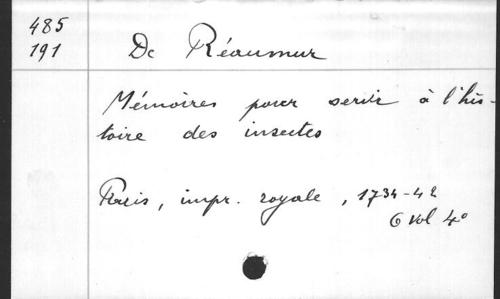 485
191
De Réaumur
Mémoires pour servir à l'his-
toire des insectes
Paris, impr. royale, 1734-42
6 vol 4°